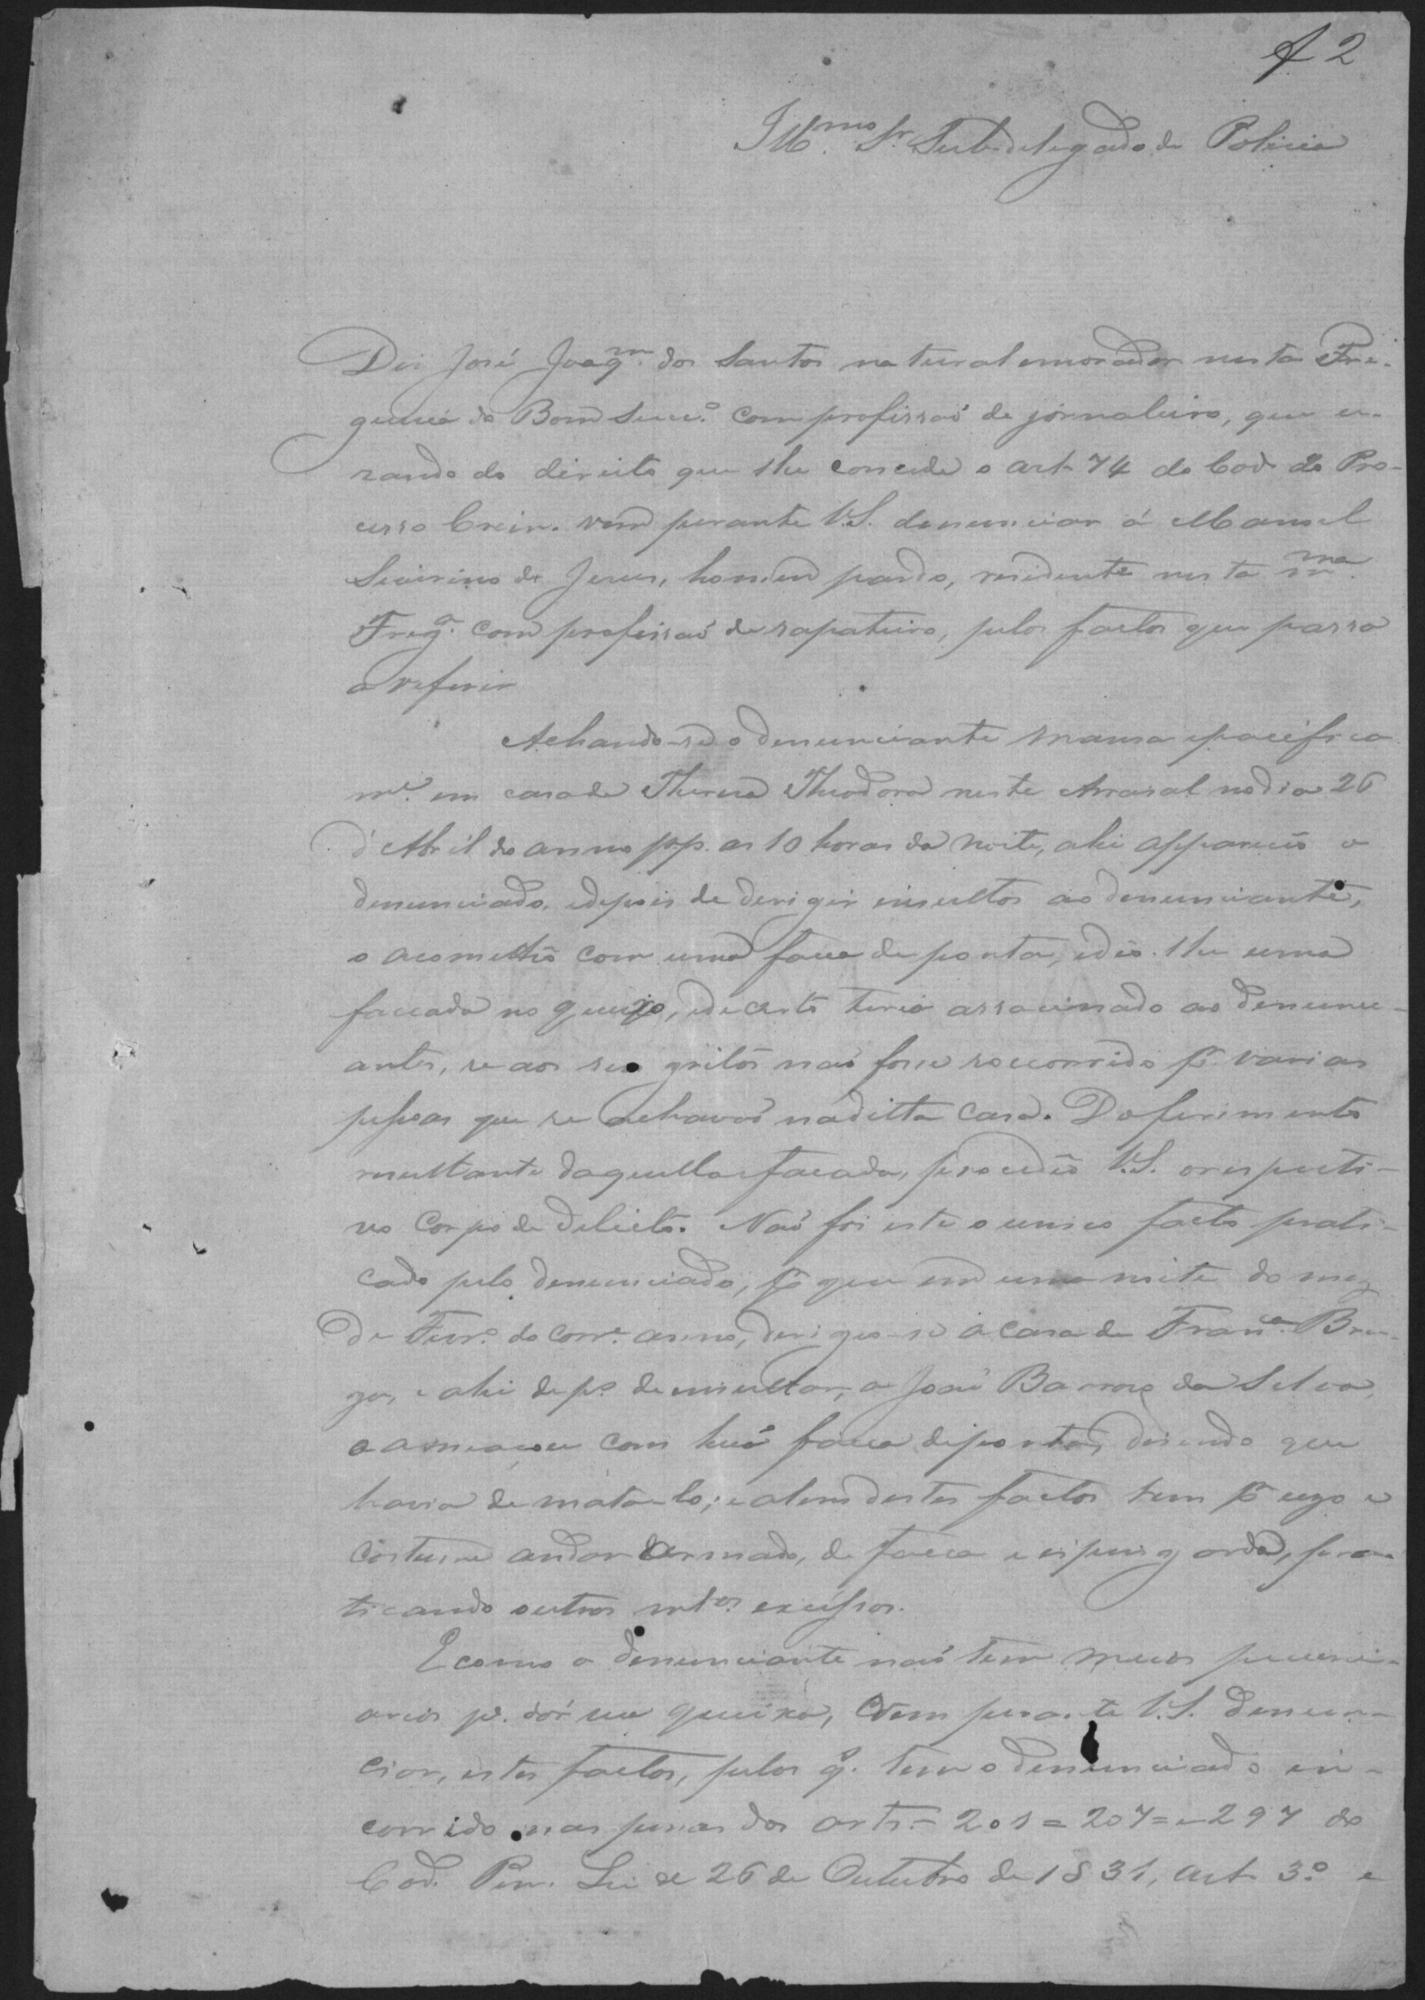 f 2
Illmo. Sr. Subdelegado de Policia
Diz José Joaqm. dos Santos natural emorador nesta Fre-
guezia do Bom Succo. com profissaó de jornaleiro, que u-
zando do direito que lhe concede o art. 74 do Cod. do Pro-
cesso Crim. vem perante V.S. denunciar á Manoel
Severino de Jesus, homem pardo, residente nesta mma.
Frega. com profissaó de sapateiro, pelos factos que passa
a referir
Achando-se o denunciante mansa epacifica
me. em casa de Thereza Theodora neste Arraial no dia 26
d'Abril do anno pp. as 10 horas da noite, ahi appareceo o
denunciado, edepois de derigir insultos ao denunciante,
o acometteo com uma faca de ponta, edeo-lhe uma
faccada no queixo, ede certo teria assacinado ao denunci-
ante, se aos seos gritos naó fosse soccorrido pr. varias
pessoas que se achavaó naditta casa. Do ferimento
resultante daquella facada, procedeo V.S. o respecti-
vo Corpo de delicto. Naó foi este o unico facto prati-
cado pelo denunciado, pr. que em uma noite do mez
de Fevro. do corre. anno, derigeo-se a casa de Franca. Bra-
ga, e ahi depo. de insultar, a José Barroso da Silva,
o ameaçou com huá faca deponta, dizendo que
havia de matal-o; e alem destes factos tem pr. uzo e
costume andar armado, de faca e espingarda, pra-
ticando outros mtos. excessos.
E como o denunciante naó tem meios pecuni-
arios pa. dár sua queixa, vem perante V.S. denun-
ciar, estes factos, pelos qs. tem o denunciado in-
corrido nas penas dos arts. = 201 = 207 = e 297 do
Cod. Pen. Lei de 26 de Outubro de 1831, art. 3º e